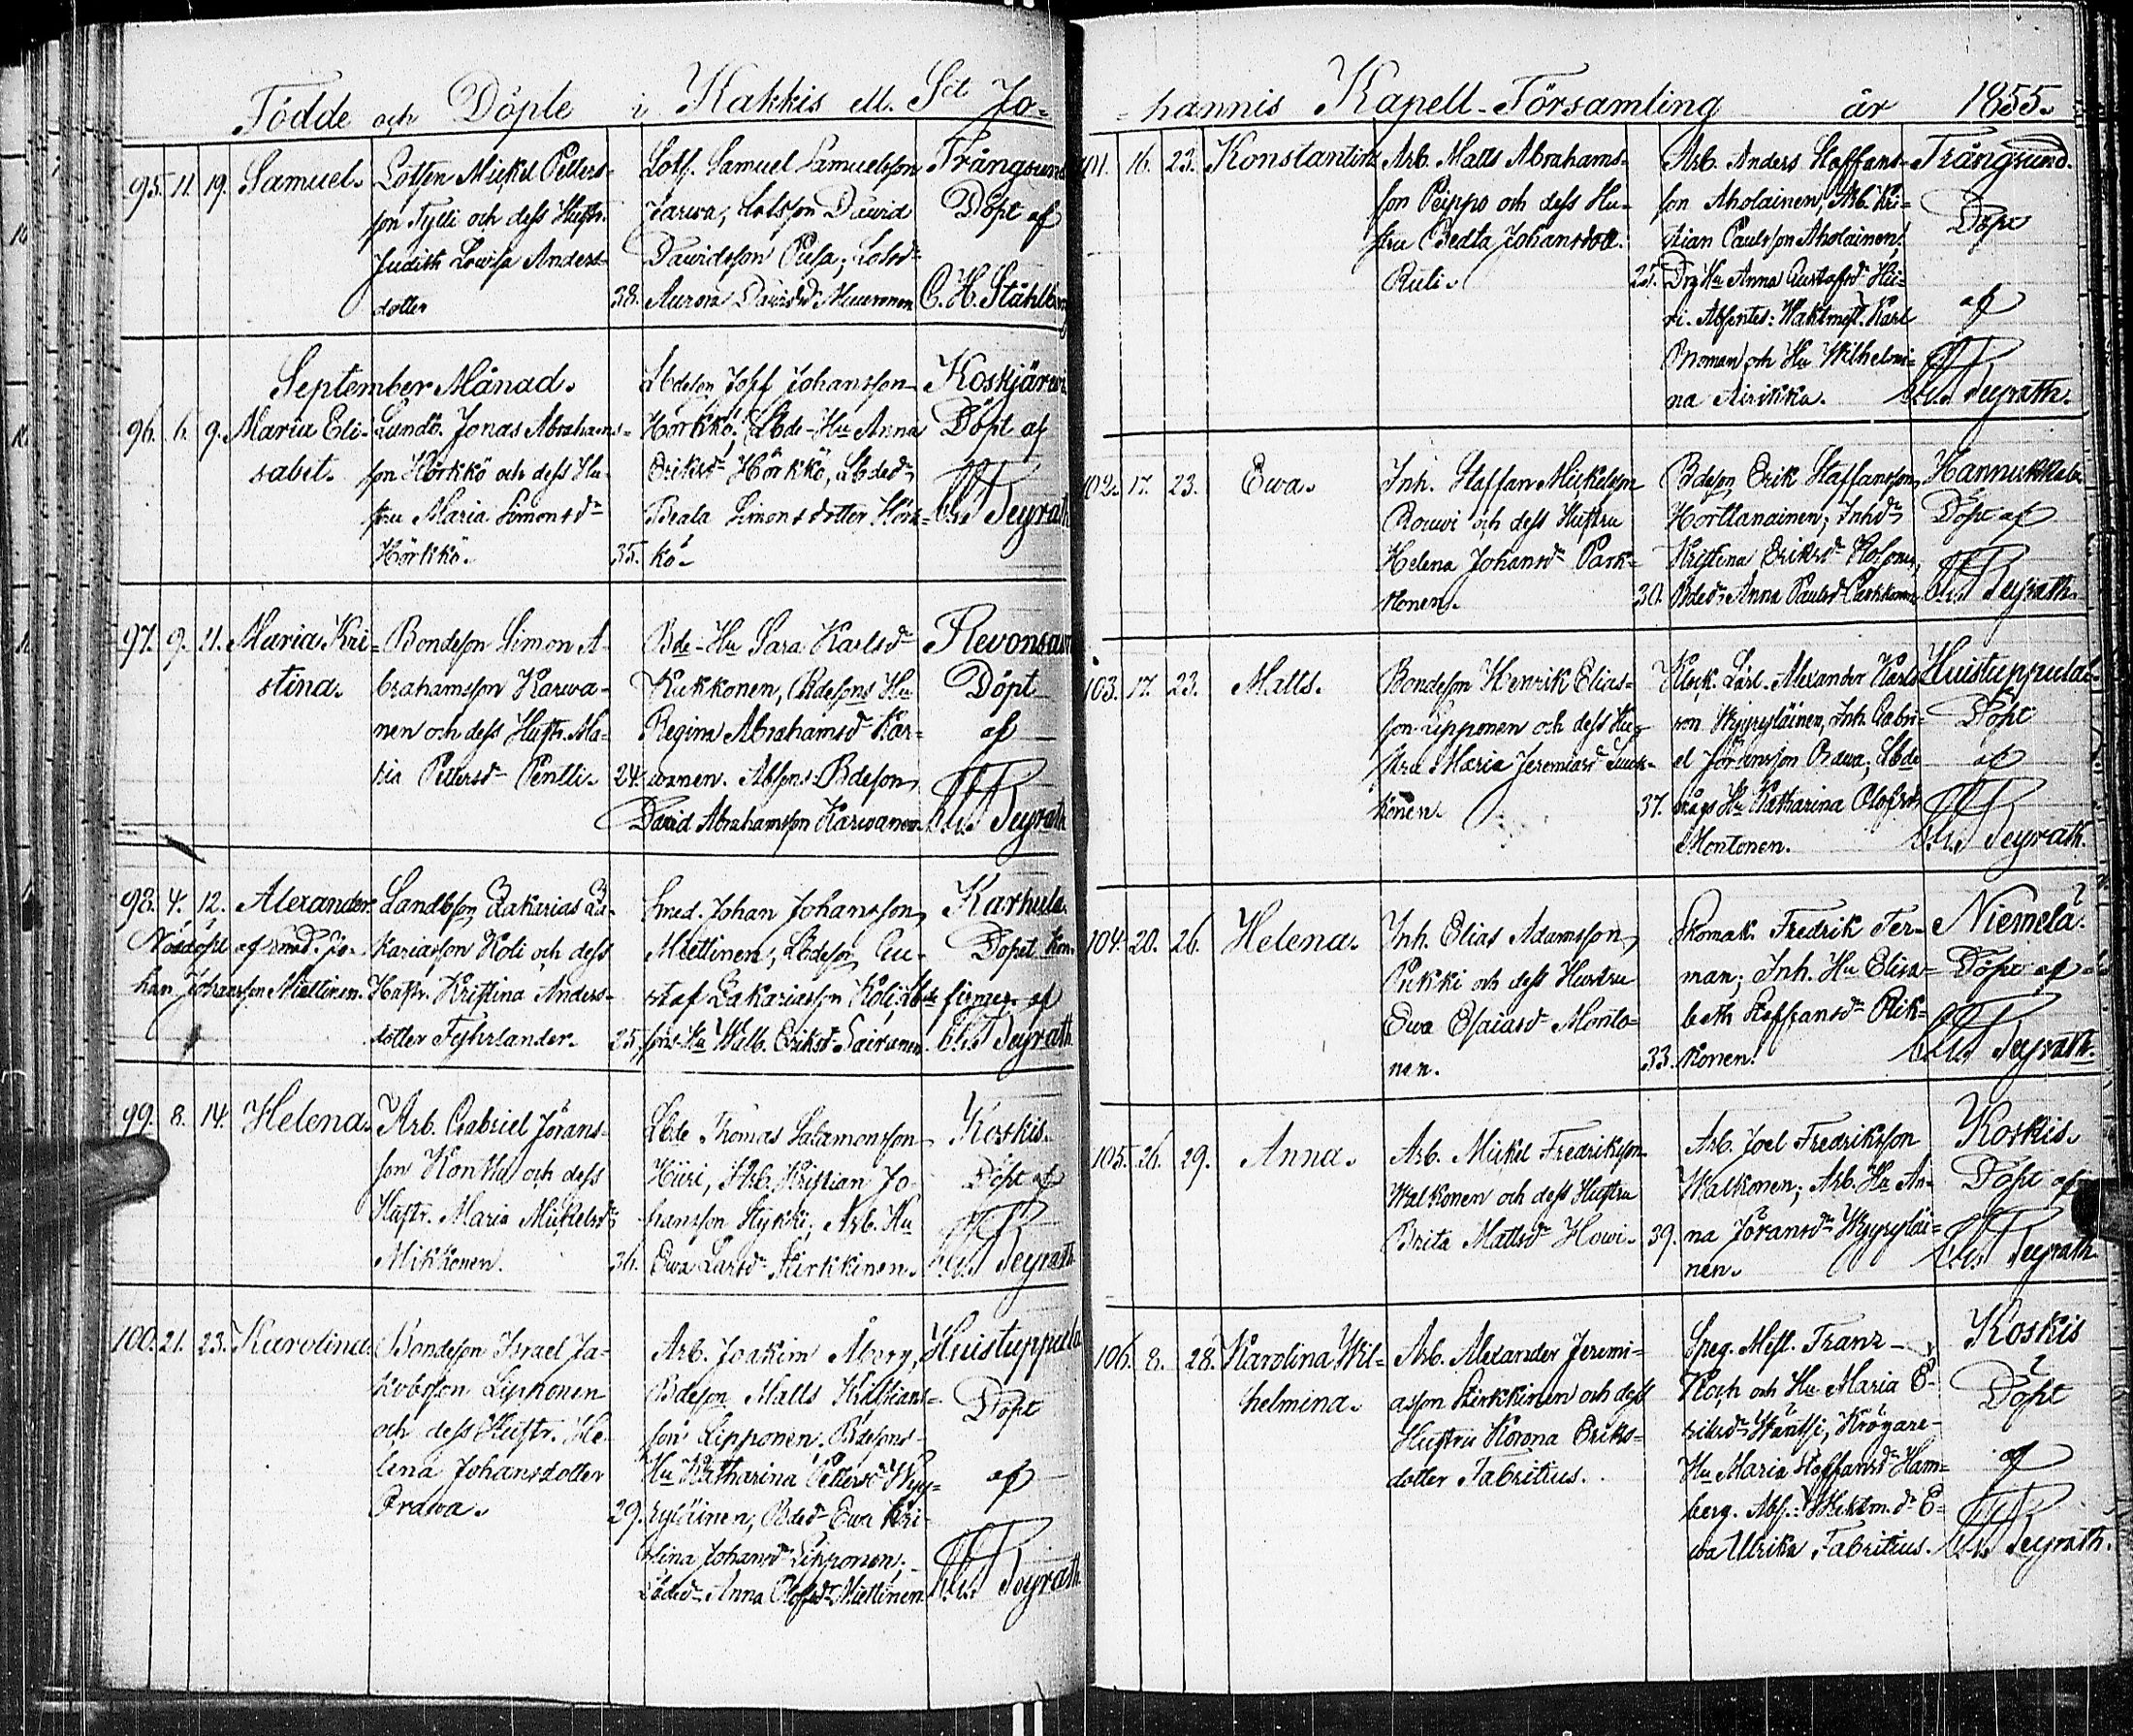 Födde och Döpte i Kakkis ell. Sct Jo=
95. 11. 19. Samuel.
Lotsen Mickel Petters-
son Tylli och dess Hustr.
Judith Lovisa Anders-
dotter
38.
Lots. Samuel Samuelsson
Jarwa; Lotsson David
Davidsson Pusa; Lotsd.
Aurora Davidsd.
Trångsund
Döpt af
C. H. Ståhlberg
September Månad.
96. 6. 9. Maria Eli-
sabet.
Lundb. Jonas Abrahams-
son Hörkkö och dess Hu-
stru Maria Simonsd.
Hörkkö.
35.
Lbdeson Josef Johansson
Hörkkö; Lbde-Hu Anna
Eriksd. Hörkkö, Lbded.
Beata Simonsdotter Hörk-
kö.
Koskjärwi
Döpt af
Teyrath
97. 9. 11. Maria Kri-
stina.
Bondeson Simon A-
brahamsson Karwa-
nen och dess Hustr. Ma-
ria Pettersd. Pentti.
24.
Bde-Hu Sara Karlsd.
Kukkonen, Bdesons Hu
Regina Abrahamsd. Kar-
wanen. Absens: Bdeson
David Abrahamsson Karwanen.
Revonsaari
Döpt
af
Teyrath
98. 4. 12. Alexander.
Nöddöpt af Smed. Jo-
han Johansson Miettinen.
Landbson Zakarias Za-
kariasson Koli och dess
Hustr. Kristina Anders-
dotter Fyhrlander.
25.
Smed. Johan Johansson
Miettinen; Lbdeson Gu-
staf Zakariasson Koli; Lbde-
sons-Hu Walb. Eriksd. Sairanen.
Karhula.
Döpet kon-
firmer. af
Teyrath
99. 8. 14. Helena.
Arb. Gabriel Jörans-
son Konttu och dess
Hustr. Maria Mickelsd.
Mikkonen.
36.
Lbde Thomas Salamonsson
Kiiri, Arb. Kristian Jo-
hansson Stykki; Arb. Hu
Ewa Larsd. Kirkkinen.
Koskis.
Döpt af
Teyrath
100. 21. 23. Karolina
Bondeson Israel Ja-
kobsson Lipponen
och dess Hustr. He-
lena Johansdotter
Orawa.
29.
Arb. Joakim Åberg,
Bdeson Matts Kristians-
son Lipponen. Bdesons-
Hu Katharina Pettersd. Wyy-
ryläinen; Bded. Ewa Kri-
stina Johansd. Lipponen;
Lbded. Anna Olofsd. Miettinen
Huistuppula
Döpt
af
Teyrath
=hannis Kapell-Församling år 1855.
101. 16. 23. Konstantin
Arb. Matts Abrahams-
son Peippo och dess Hu-
stru Bedta Johansdott.
Ruli.
25.
Arb. Anders Staffans-
son Aholainen; Arb. Kri-
stian Paulsson Aholainen;
Drg Hu Anna Gustafsd. Hii-
ri. Absentes: Waktmäst. Karl
Broman och Hu Wilhelmi-
na Airikka.
Trångsund.
Döpt
af
Teyrath.
102. 17. 23. Ewa.
Inh. Staffan Mickelson
Rouwi och dess Hustru
Helena Johansd. Park-
konen.
30.
Bdeson Erik Staffansson
Horttanainen; Inhd.
Kristina Eriksd.
Bded. Anna Paulsd. Parkkonen
Hannukkala
Döpt af
Teyrath.
103. 17. 23. Matts.
Bondeson Henrik Elias-
son Lipponen och dess Hu-
stru Maria Jeremiasd. Suuk-
konen.
37.
Klock. Lärl. Alexander Karls-
son Wyyryläinen, Inh. Gabri-
el Johansson Orawa; Lbde
mågs Hu Katharina Olofsd.
Montonen.
Huistuppula.
Döpt
af
Teyrath.
104. 20. 26. Helena.
Inh. Elias Adamsson
Pukki och dess Hustru
Ewa Esaiasd. Monto-
nen.
33.
Skomak. Fredrik Ter-
man; Inh. Hu Elisa-
beth Staffansd. Rik-
konen.
Niemelä.
Döpt af
Teyrath.
105. 26. 29. Anna.
Arb. Mickel Fredriksson
Walkonen och dess Hustru
Brita Mattsd. Howi.
39.
Arb. Joel Fredriksson
Walkonen; Arb. Hu An-
na Jöransd. Wyyryläi-
nen.
Koskis.
Döpt af
Teyrath
106. 8. 28. Karolina Wil-
helmina.
Arb. Alexander Jeremi-
asson Kirkkinen och dess
Hustru Korona Eriks-
dotter Fabritius.
Speg. Mest. Franz
Koch och Hu Maria E-
riksd. Wäntsi, Krögare-
Hu Maria Staffansd. Ham-
berg. Abs.: Wektm.d. E-
wa Ulrika Fabritius.
Koskis
Döpt
af
Teyrath.